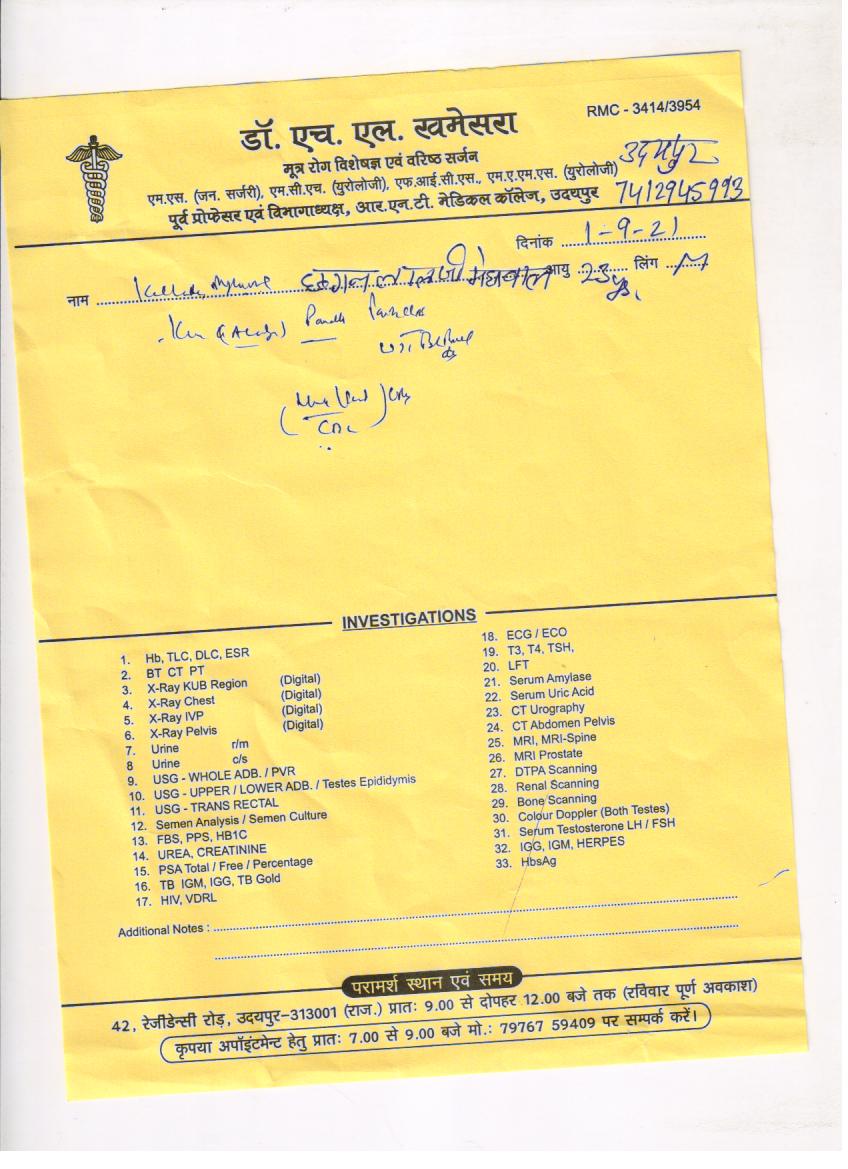 RMC - 3414/3954
डॉ. एच. एल. खमेसरा
मूत्र रोग विशेषज्ञ एवं वरिष्ठ सर्जन
एम.एस. (जन. सर्जरी), एम.सी.एच. (युरोलोजी), एफ.आई.सी.एस., एम.ए.एम.एस. (युरोलोजी)
पूर्व प्रोफेसर एवं विभागाध्यक्ष, आर.एन.टी. मेडिकल कॉलेज, उदयपुर
उदयपुर
7412945993
दिनांक 1-9-21
नाम मेघवाल आयु 23 ys. लिंग M
INVESTIGATIONS
1. Hb, TLC, DLC, ESR
2. BT CT PT
3. X-Ray KUB Region (Digital)
4. X-Ray Chest (Digital)
5. X-Ray IVP (Digital)
6. X-Ray Pelvis (Digital)
7. Urine r/m
8 Urine c/s
9. USG - WHOLE ADB. / PVR
10. USG - UPPER / LOWER ADB. / Testes Epididymis
11. USG - TRANS RECTAL
12. Semen Analysis / Semen Culture
13. FBS, PPS, HB1C
14. UREA, CREATININE
15. PSA Total / Free / Percentage
16. TB IGM, IGG, TB Gold
17. HIV, VDRL
18. ECG / ECO
19. T3, T4, TSH,
20. LFT
21. Serum Amylase
22. Serum Uric Acid
23. CT Urography
24. CT Abdomen Pelvis
25. MRI, MRI-Spine
26. MRI Prostate
27. DTPA Scanning
28. Renal Scanning
29. Bone Scanning
30. Colour Doppler (Both Testes)
31. Serum Testosterone LH / FSH
32. IGG, IGM, HERPES
33. HbsAg
Additional Notes :
परामर्श स्थान एवं समय
42, रेजीडेन्सी रोड़, उदयपुर-313001 (राज.) प्रातः 9.00 से दोपहर 12.00 बजे तक (रविवार पूर्ण अवकाश)
कृपया अपॉइंटमेन्ट हेतु प्रातः 7.00 से 9.00 बजे मो.: 79767 59409 पर सम्पर्क करें।